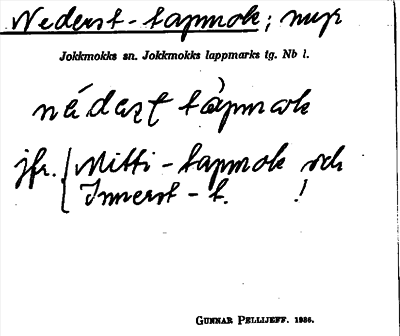 Nederst-tapmok; myr
Jokkmokks sn. Jokkmokks lappmarks tg. Nb l.
nédaʂt tàpmɒk
jfr. { Mitti-tapmok och
Innerst-t. !
GUNNAR PELLIJEFF. 1936.